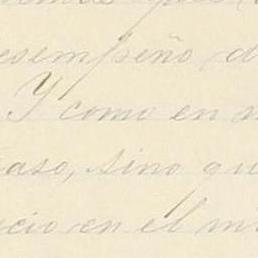 desempeño d
Y como en n
aso, sino qu
cio en el mi